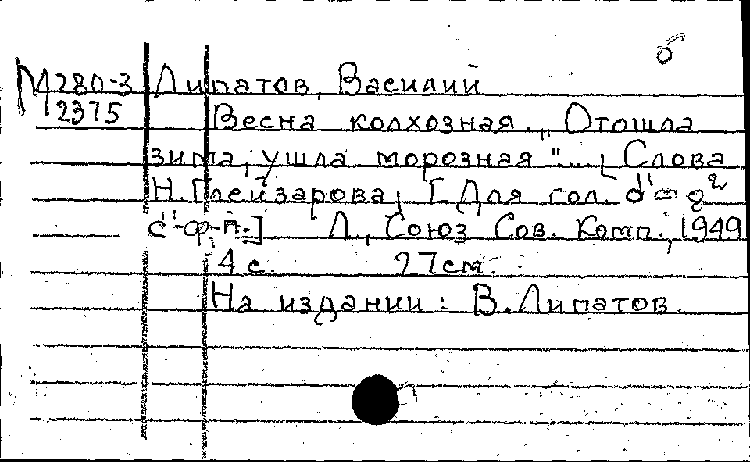 М280-3 Липатов, Василий
2375 Весна колхозная. "Отошла
зима, ушла морозная"... [Слова
Н. Глейзарова] [Для гол.
с ф-п.] Л., Союз Сов. Комп., 1949
4 с. 27 см.
На издании: В. Липатов.